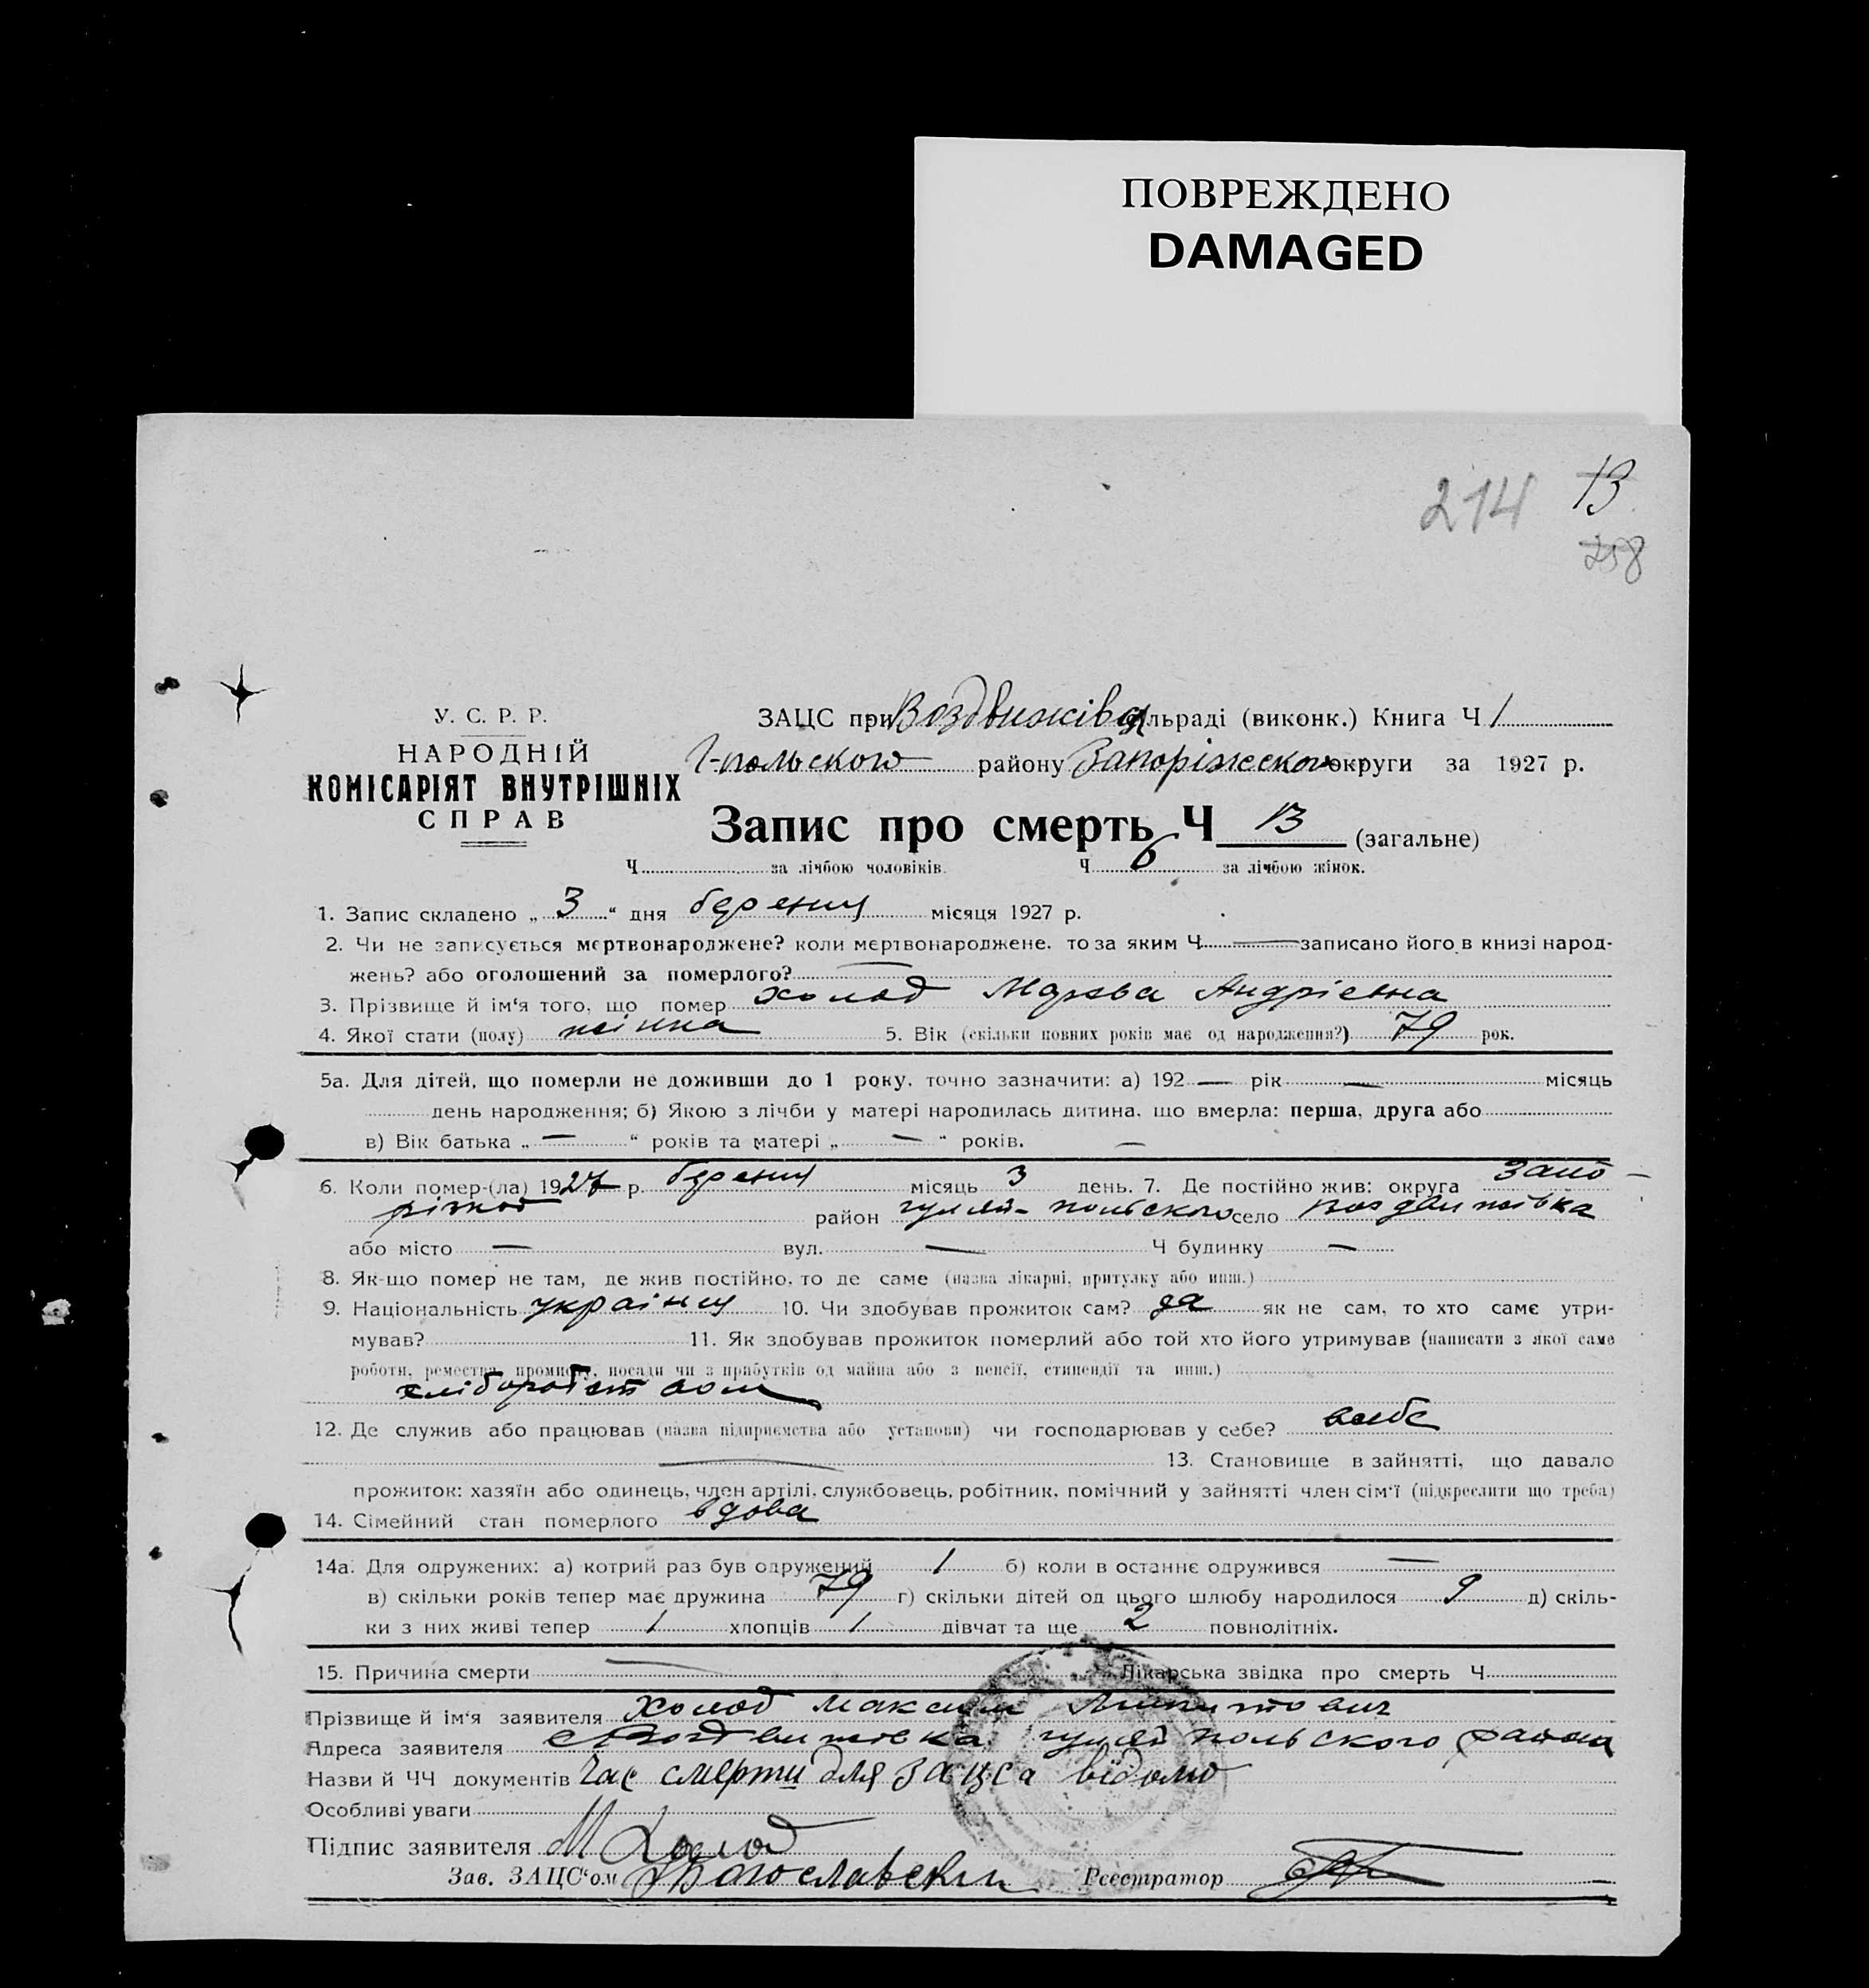 ПОВРЕЖДЕНО
DAMAGED
214 13
258
У. С. Р. Р.
НАРОДНІЙ
КОМІСАРІЯТ ВНУТРІШНІХ
СПРАВ
ЗАЦС при Воздвижівск сільраді (виконк.) Книга Ч 1
Г-польского району Запоріжского округи за 1927 р.
Запис про смерть Ч 13 (загальне)
Ч за лічбою чоловіків. Ч 6 за лічбою жінок.
1. Запис складено „ 3 “ дня березня місяця 1927 р.
2. Чи не записується мертвонароджене? коли мертвонароджене, то за яким Ч — записано його в книзі народ-
жень? або оголошений за померлого? —
3. Прізвище й ім‘я того, що помер Холод Андрієвна
4. Якої стати (полу) жінка 5. Вік (скільки повних років має од народження?) 79 рок.
5а. Для дітей, що померли не доживши до 1 року, точно зазначити: а) 192 — рік — місяць
день народження; б) Якою з лічби у матері народилась дитина, що вмерла: перша, друга або
в) Вік батька „ — “ років та матері „ — “ років. —
6. Коли помер-(ла) 1927 р. березня місяць 3 день. 7. Де постійно жив: округа Запо-
ріжської район Гуляй-польского село Воздвижівка
або місто — вул. — Ч будинку —
8. Як-що помер не там, де жив постійно, то де саме (назва лікарні, притулку або инш.)
9. Національність українц 10. Чи здобував прожиток сам? да як не сам, то хто саме утри-
мував? 11. Як здобував прожиток померлий або той хто його утримував (написати з якої саме
роботи, ремества, промислу, посади чи з прибутків од майна або з пенсії, стипендії та инш.)
хліборобством
12. Де служив або працював (назва підприємства або установи) чи господарював у себе? в себе
— 13. Становище в зайнятті, що давало
прожиток: хазяїн або одинець, член артілі, службовець, робітник, помічний у зайнятті член сім‘ї (підкреслити що треба)
14. Сімейний стан померлого вдова
14а. Для одружених: а) котрий раз був одружений 1 б) коли в останнє одружився —
в) скільки років тепер має дружина 79 г) скільки дітей од цього шлюбу народилося 9 д) скіль-
ки з них живі тепер 1 хлопців 1 дівчат та ще 2 повнолітніх.
15. Причина смерти — Лікарська звідка про смерть Ч
Прізвище й ім‘я заявителя Холод Максим
Адреса заявителя с Воздвижівка Гуляй польского района
Назви й ЧЧ документів Час смерти для зацса відомо
Особливі уваги
Підпис заявителя М Холод
Зав. ЗАЦС‘ом Богославский Реєстратор